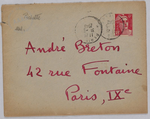 André Breton
42 rue Fontaine
Paris, IXe